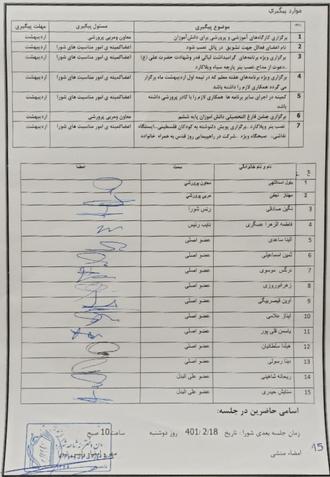 موارد پیگیری
موضوع پیگیری مسئول پیگیری مهلت پیگیری
1 برگزاری کارگاه‌های آموزشی و پرورشی برای دانش‌آموزان معاون ومربی پرورشی اردیبهشت
2 نام اعضای فعال جهت تشویق در پاتل نصب شود اعضاکمیته ی امور مناسبت های شورا اردیبهشت
3 برگزاری ویژه برنامه‌های گرامیداشت لیالی قدر وشهادت حضرت علی (ع) اعضاکمیته ی امور مناسبت های شورا اردیبهشت
.دعوت از مداح نصب بنر پارچه سیاه وپلاکارد
4 برگزاری ویژه برنامه‌های هفته معلم که در نیمه اول اردیبهشت ماه برگزار اعضاکمیته ی امور مناسبت های شورا اردیبهشت
می گردد همکاری لازم را داشته باشد
5 کمیته در اجرای سایر برنامه ها همکاری لازم را با کادر پرورشی داشته اعضاکمیته ی امور مناسبت های شورا اردیبهشت
باشد
6 برگزاری جشن فارغ التحصیلی دانش اموزان پایه ششم معاون ومربی پرورشی اردیبهشت
7 نصب بنر وپلاکارد .برگزاری پویش دلنوشته به کودکان فلسطینی.ایستگاه اعضاکمیته ی امور مناسبت های شورا اردیبهشت
نقاشی. صبحگاه ویژه .شرکت در راهپیمایی روز قدس به همراه خانواده
نام و نام خانوادگی سمت امضا
1 بتول اسداللهی معاون پرورشی
2 مهناز نجفی مربی پرورشی
3 نگین صادقی رئیس شورا
4 فاطمه الزهرا عسگری نایب رئیس
5 الینا ساعدی عضو اصلی
6 ثمین اسماعیلی عضو اصلی
7 نرگس موسوی عضو اصلی
8 زهرانوروزی عضو اصلی
9 آوین قیصربیگی عضو اصلی
10 آیناز غلامی عضو اصلی
11 یاسمن قلی پور عضو اصلی
12 هیلدا سلطانیان عضو اصلی
13 دینا رسولی عضو اصلی
14 ریحانه شاهینی عضو علی البدل
15 ستایش حیدری عضو علی البدل
اسامی حاضرین در جلسه:
زمان جلسه بعدی شورا : تاریخ 401/2/18 روز دوشنبه ساعت10 صبح
امضاء منشی
15